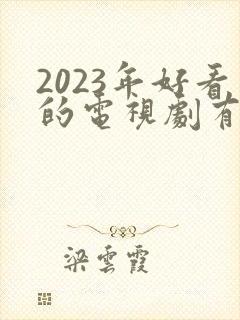 2023年好看
的電視劇有
梁雲霞